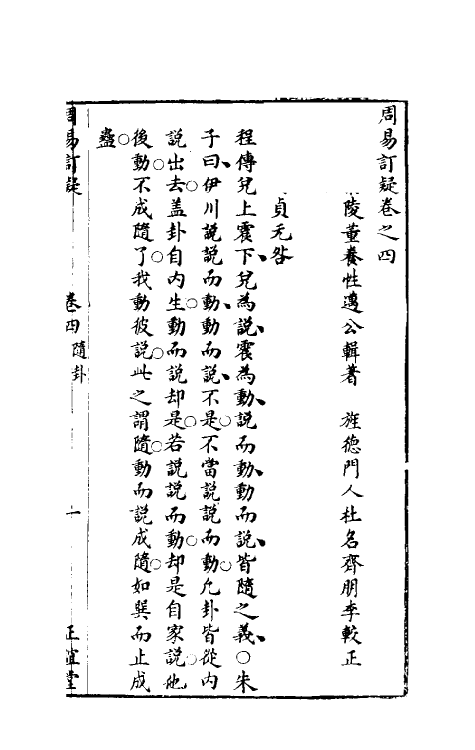 周易訂疑卷之四
陵董養性邁公輯著　旌德門人杜名齊朋李較正
貞无咎
程傳兌上震下、兌為說、震為動、說而動、動而說、皆隨之義、○朱
子曰、伊川說說而動、動而說、不是○不當說說而動○凡卦皆從內
說出去○盖卦自內生○動而說却是○若說說而動○却是自家說他
後動○不成隨了○我動彼說○此之謂隨○動而說成隨○如巽而止成
蠱○
周易訂疑　卷四　隨卦　一　正誼堂